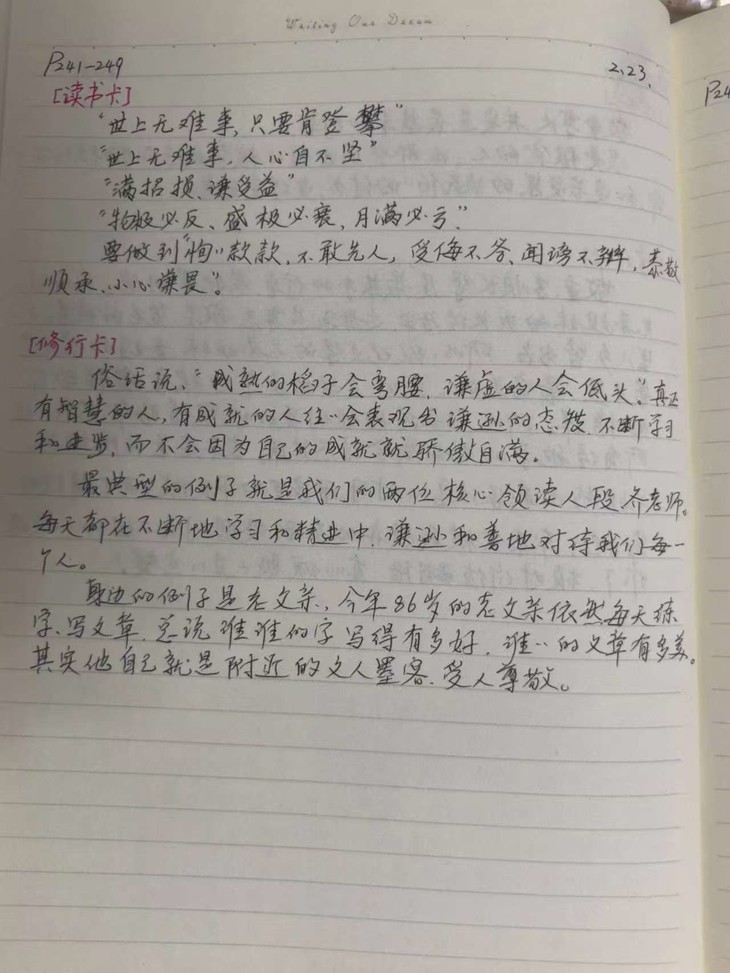 Writing Our Dream
P241-249 2.23.
[读书卡]
"世上无难事,只要肯登攀"
"世上无难事,人心自不坚"
"满招损、谦受益"
"物极必反、盛极必衰,月满必亏."
要做到"恂〃款款,不敢先人,受侮不答、闻谤不辩,恭敬
顺承、小心谦畏"。
[修行卡]
俗话说,"成熟的稻子会弯腰,谦虚的人会低头"。真正
有智慧的人,有成就的人往〃会表现出谦逊的态度,不断学习
和进步,而不会因为自己的成就就骄傲自满。
最典型的例子就是我们的两位核心领读人段、齐老师。
每天都在不断地学习和精进中,谦逊和善地对待我们每一
个人。
身边的例子是老父亲,今年86岁的老父亲依然每天练
字、写文章,总说谁谁的字写得有多好,谁〃的文章有多美。
其实他自己就是附近的文人墨客、受人尊敬。
P24